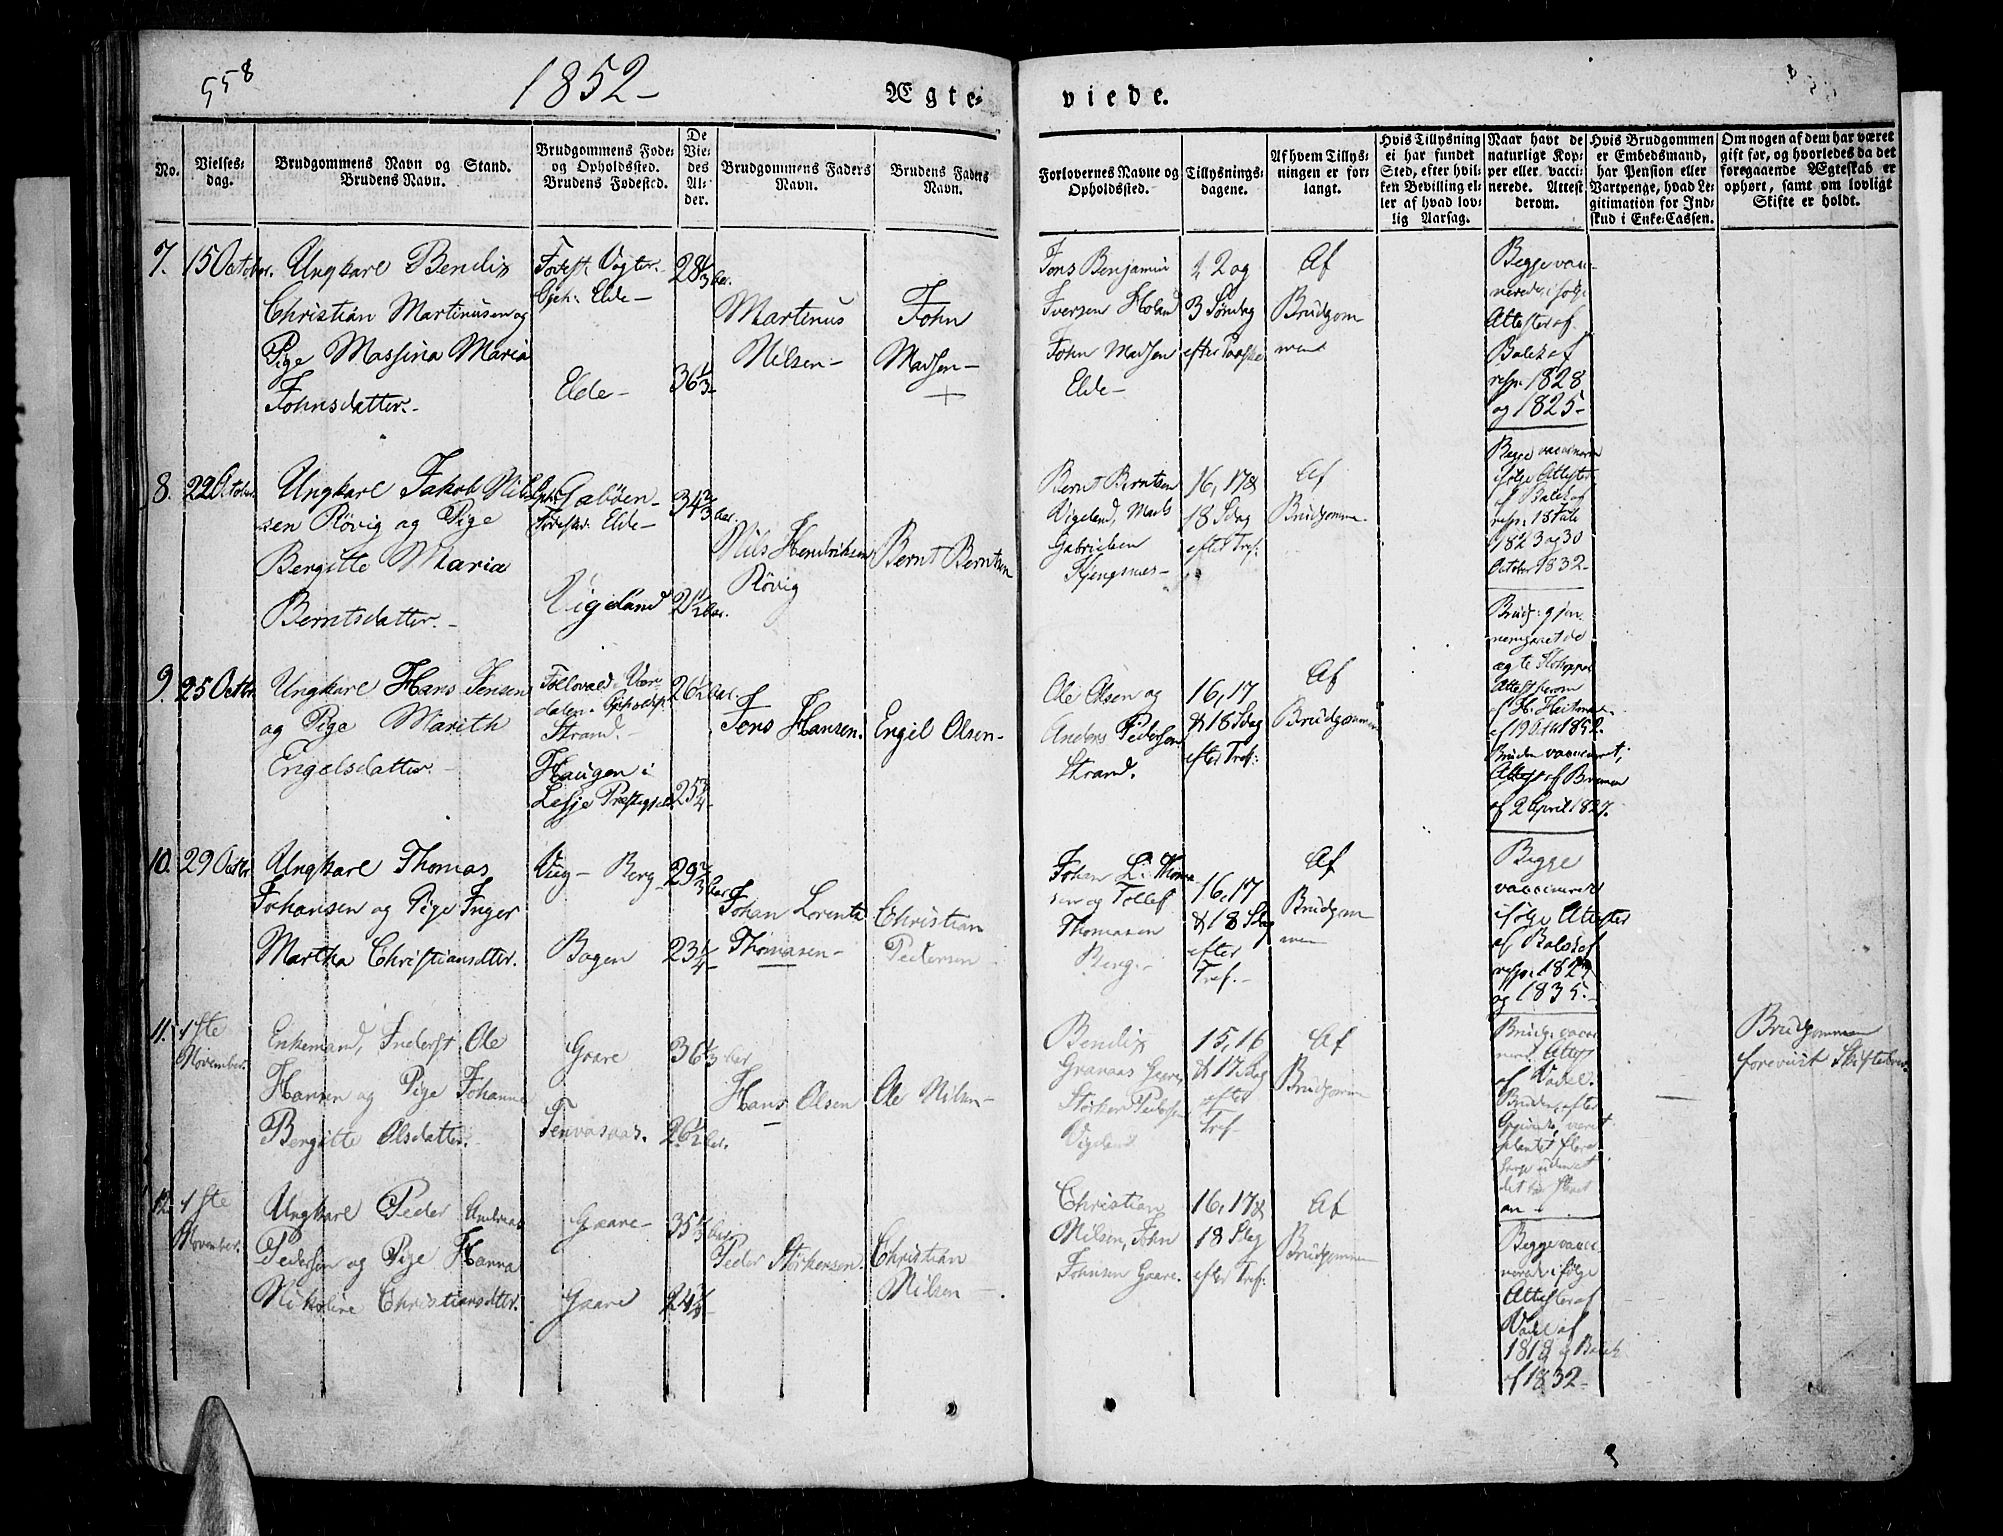 558
1852
Ægte-
viede.
No.
Vielses-
dag.
Brudgommens Navn og Stand.
Brudens Navn.
Brudgommens Føde-
og Opholdssted.
Brudens Fødested.
De
Vie-
des
Al-
der.
Brudgommens Faders
Navn.
Brudens Faders
Navn.
Forlovernes Navne og
Opholdssted.
Tillysnings-
dagene.
Af hvem Tillys-
ningen er for-
langt.
Hvis Tillysning
ei har fundet
Sted, efter hvil-
ken Bevilling el-
ler af hvad lov-
lig Aarsag.
Naar havt de
naturlige Kop-
per eller vacci-
nerede. Attest
derom.
Hvis Brudgommen
er Embedsmand,
har Pension eller
Vartpenge, hvad Le-
gitimation for Ind-
skud i Enke-Cassen.
Om nogen af dem har været
gift før, og hvorledes da det
foregaaende Ægteskab er
ophørt, samt om lovligt
Skifte er holdt.
7.
15 October.
Ungkarl Bendix
Christian Martinusen og
Pige Massina Maria
Johnsdatter.
Opholdst: Elde
Elde
28⅓ Aar.
36⅓
Martinus
Nilsen
John
Madsen
+
Jens Benjamin
Iversen Holand
John Madsen
Elde
2 og
3 Søndag
efter Paaske
Af
Brudgom
men
Begge vacci-
nerede, ifølge
Attester af
Balck af
resp. 1828
og 1825
8.
22 October
Ungkarl Jakob Nil-
sen Røvig og Pige
Bergitte Maria
Berntsdatter.
Fødested: Elde
Vigeland
34⅔ Aar.
21½ Aar.
Nils Hendriksen
Røvig
Bernt Berntsen
Bernt Berntsen
Vigeland, Mads
Gabrielsen
16, 17 &
18 Sdag
efter Tref:
Af
Brudgomm.
Begge vaccineret
ifølge Attester
af Balck af
resp. 15 Juli
1823 og 30
October 1832
9.
25 Octbr.
Ungkarl Hans Jensen
og Pige Marith
Engelsdatter.
Vær-
dalen. Opholdst
Strand.
Haugen i
Lesje Præstegjeld
26½ Aar.
25¾
Jens Hansen.
Engil Olsen
Ole Olsen og
Anders Pedersen
Strand.
16, 17
& 18 Sdag
efter Tref:
Af
Brudgommen
Brudg: gjen-
nemgaaet de
ægte Kokopper
Attest herom
af H. Heitman
af 19 Octr 1852.
Bruden vaccineret,
Attest af
af 2 April 1827.
10.
29 Octbr
Ungkarl Thomas
Johansen og Pige Inger
Martha Christiansdtter.
Berg
Bogen
29⅔ Aar
23¼
Johan Lorents
Thomasen
Christian
Pedersen
Johan L. Thoma
sen og Tollef
Thomasen
Berg.
16, 17
& 18 Sdag
efter
Tref.
Af
Brudgom
men
Begge
vaccineret
ifølge Attester
af Balck af
resp. 1827
og 1835.
11.
1ste
November.
Enkemand, Inderst Ole
Hansen og Pige Johanna
Bergitte Olsdatter.
Gaare
36⅓ Aar
26½ Aar.
Hans Olsen
Ole Nilsen
Bendix
Størker Pedersen
Vigeland
15, 16
& 17 Sdag
efter
Tref.
Af
Brudgomm
Brudg: vacci-
neret. Attest
af Vadel.
Bruden, efter
Opgivende, været
plantet flere
Gange uden at
det har slaaet
an
Brudgommen
forevist Skiftebrev.
12.
1ste
November.
Ungkarl Peder Andreas
Pedersen og Pige Hanna
Nikoline Christiansdtter.
Gaare
Gaare
Peder Størkersen.
Christian
Nilsen
Christian
Nilsen, John
Johnsen Gaare.
16, 17 &
18 Sdag
efter Tref:
Af
Brudgommen
Begge vacci-
nerede ifølge
Attester af
Vadel af
1818 og Balck
af 1832